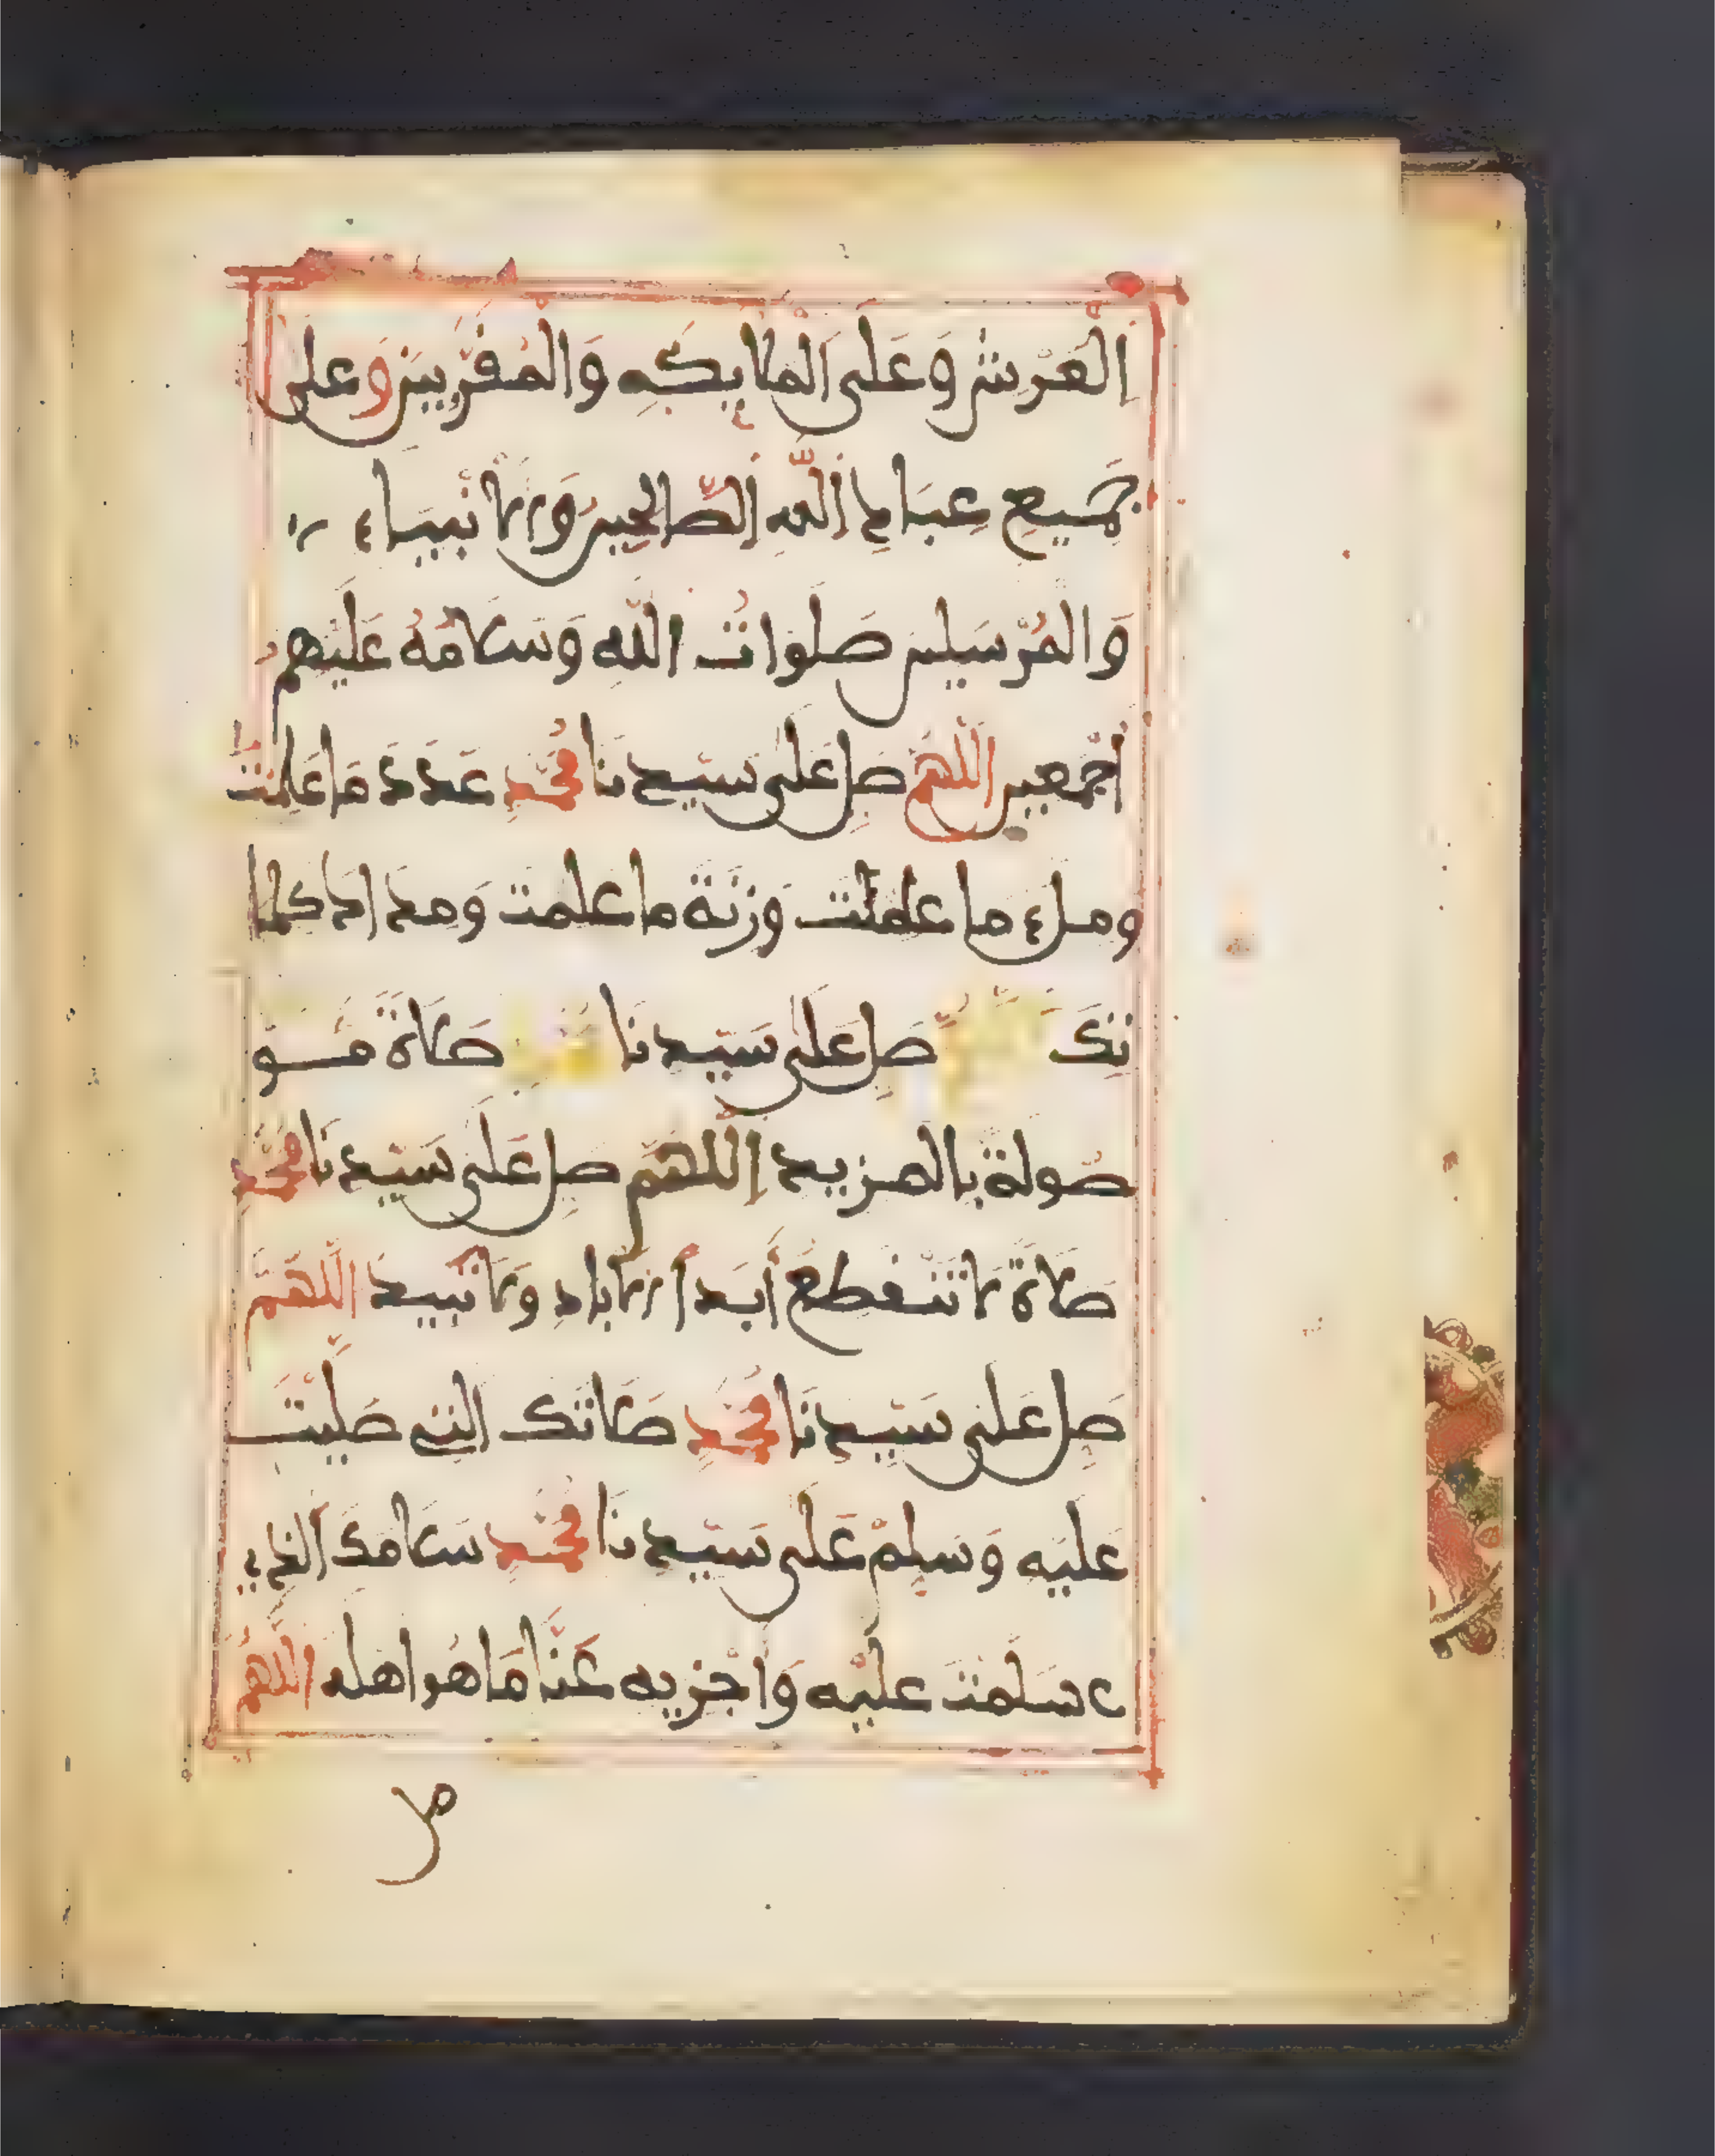 الْعَرْشِ وَعَلَى الْمَلَايِكَهِ وَالْمُقَرَّبِينَ وَعَلَى
جَمِيعِ عِبَادِ اللَّهِ الصَّالِحِينَ وَالْأَنْبِيَاءِ
وَالْمُرْسَلِينَ صَلَوَاتُ اللَّهِ وَسَلَامُهُ عَلَيْهِمُ
أَجْمَعِينَ اللَّهُمَّ صَلِّ عَلَى سَيِّدِنَا مُحَمَّدٍ عَدَدَ مَا عَلِمْتَ
وملء ما علمت وَزِنَةَ ما علمت وَمداد كلما
تِكَ اللهم صَلِّ عَلَى سَيِّدِنَا محمد صَلَاةً مَــو
صُولَةً بالمزيد اللَّهُمَّ صلِّ عَلَى سَيِّدِنَا مُحَمَّدٍ
صَلَاةً لَا تَنْقَطِعُ أَبَدَ الْأَبَادِ وَلَا تَبِيدُ اللَّهُمَّ
صَلِّ عَلَى سَيِّدِنَا مُحَمَّدٍ صَلَاتَكَ التِي صَلَّيْتَ
عَلَيْهِ وَسَلِّمْ عَلَى سَيِّدِنَا مُحَمَّدٍ سَلَامَكَ الَّذِي
سَلَّمْتَ عَلَيْهِ وَاجْزِيهِ عَنَّا مَا هُوَ اهله اللَّهُمَّ
صل